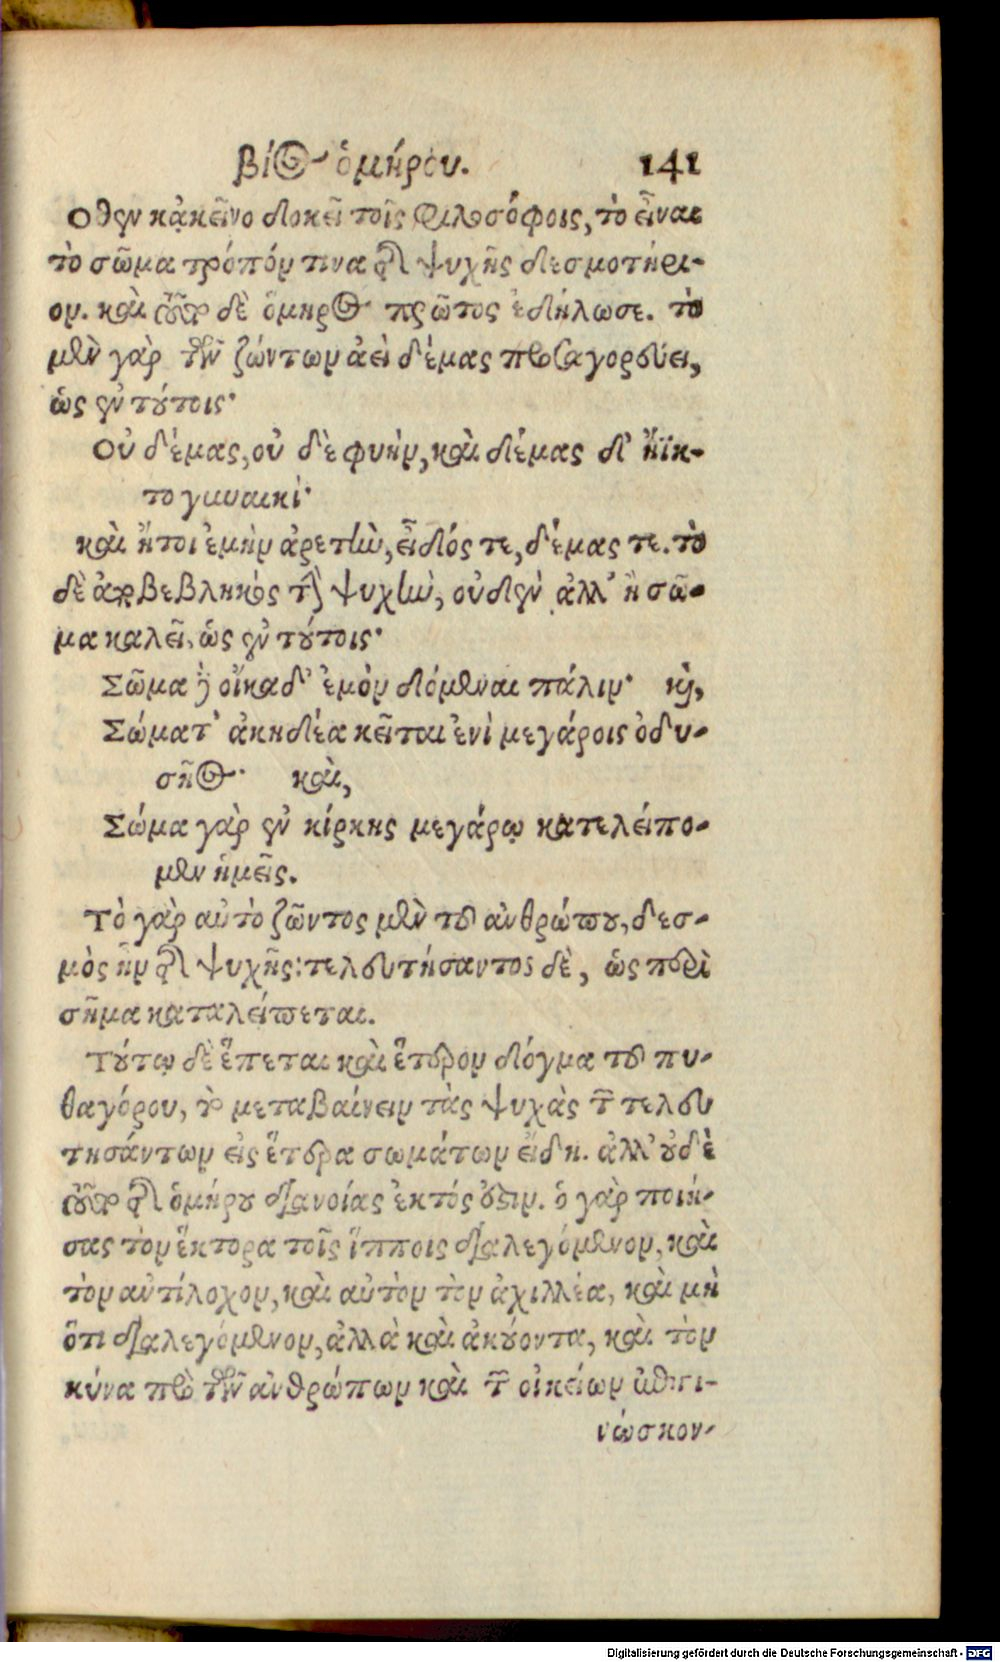 βίος ὁμήρου. 141
Οθεν κἀκεῖνο δοκεῖ τοῖς φιλοσόφοις, τὸ εἶναι
τὸ σῶμα τρόπόν τινα τῆς ψυχῆς δεσμοτήρι-
ον. καὶ τοῦτο δὲ ὅμηρος πρῶτος ἐδήλωσε. τὸ
μὲν γὰρ τῶν ζώντων ἀεὶ δέμας προσαγορεύει,
ὡς ἐν τούτοις·
Οὐ δέμας, οὐ δὲ φυὴν, καὶ δέμας δ' ἤϊκ-
το γυναικί·
καὶ ἤτοι ἐμὴν ἀρετὴν, εἶδός τε, δέμας τε. τὸ
δὲ ἀποβεβληκὸς τὴν ψυχὴν, οὐδὲν ἀλλ' ἢ σῶ-
μα καλεῖ, ὡς ἐν τούτοις·
Σῶμα δὲ οἴκαδ' ἐμὸν δόμεναι πάλιν· καὶ,
Σώματ' ἀκηδέα κεῖται ἐνὶ μεγάροις ὀδυ-
σῆος· καὶ,
Σώμα γὰρ ἐν κίρκης μεγάρῳ κατελείπο-
μεν ἡμεῖς.
Τὸ γὰρ αὐτὸ ζῶντος μὲν τοῦ ἀνθρώπου, δεσ-
μὸς ἦν τῆς ψυχῆς: τελευτήσαντος δὲ, ὡς περὶ
σῆμα καταλείπεται.
Τούτῳ δὲ ἕπεται καὶ ἕτερον δόγμα τοῦ πυ-
θαγόρου, τὸ μεταβαίνειν τὰς ψυχὰς τῶν τελευ
τησάντων εἰς ἕτερα σωμάτων εἴδη. ἀλλ' οὐδὲ
τοῦτο τῆς ὁμήρου διανοίας ἐκτός ἐστιν. ὁ γὰρ ποιή-
σας τὸν ἕκτορα τοῖς ἵπποις διαλεγόμενον, καὶ
τὸν αὐτίλοχον, καὶ αὐτὸν τὸν ἀχιλλέα, καὶ μὴ
ὅτι διαλεγόμενον, ἀλλὰ καὶ ἀκούοντα, καὶ τὸν
κύνα πρὸ τῶν ἀνθρώπων καὶ τῶν οἰκείων
νώσκον-
Digitalisierung gefördert durch die Deutsche Forschungsgemeinschaft - DFG